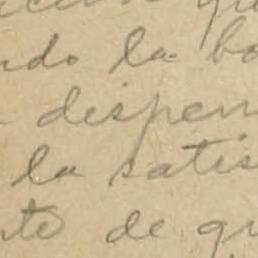 ndo la bo
dispen
la satis
nte de qu